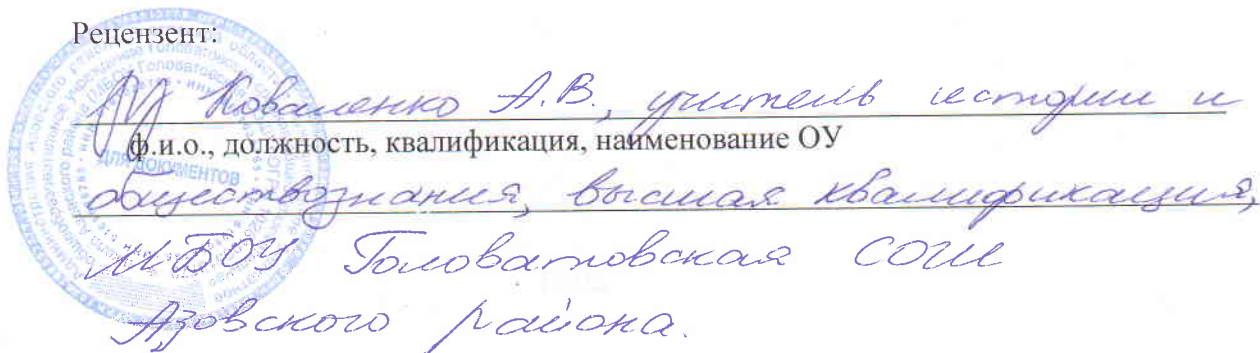 Рецензент:
Коваленко А.В., учитель истории и
ф.и.о., должность, квалификация, наименование ОУ
обществознания, высшая квалификация,
МБОУ Головатовская СОШ
Азовского района.
ДЛЯ ДОКУМЕНТОВ